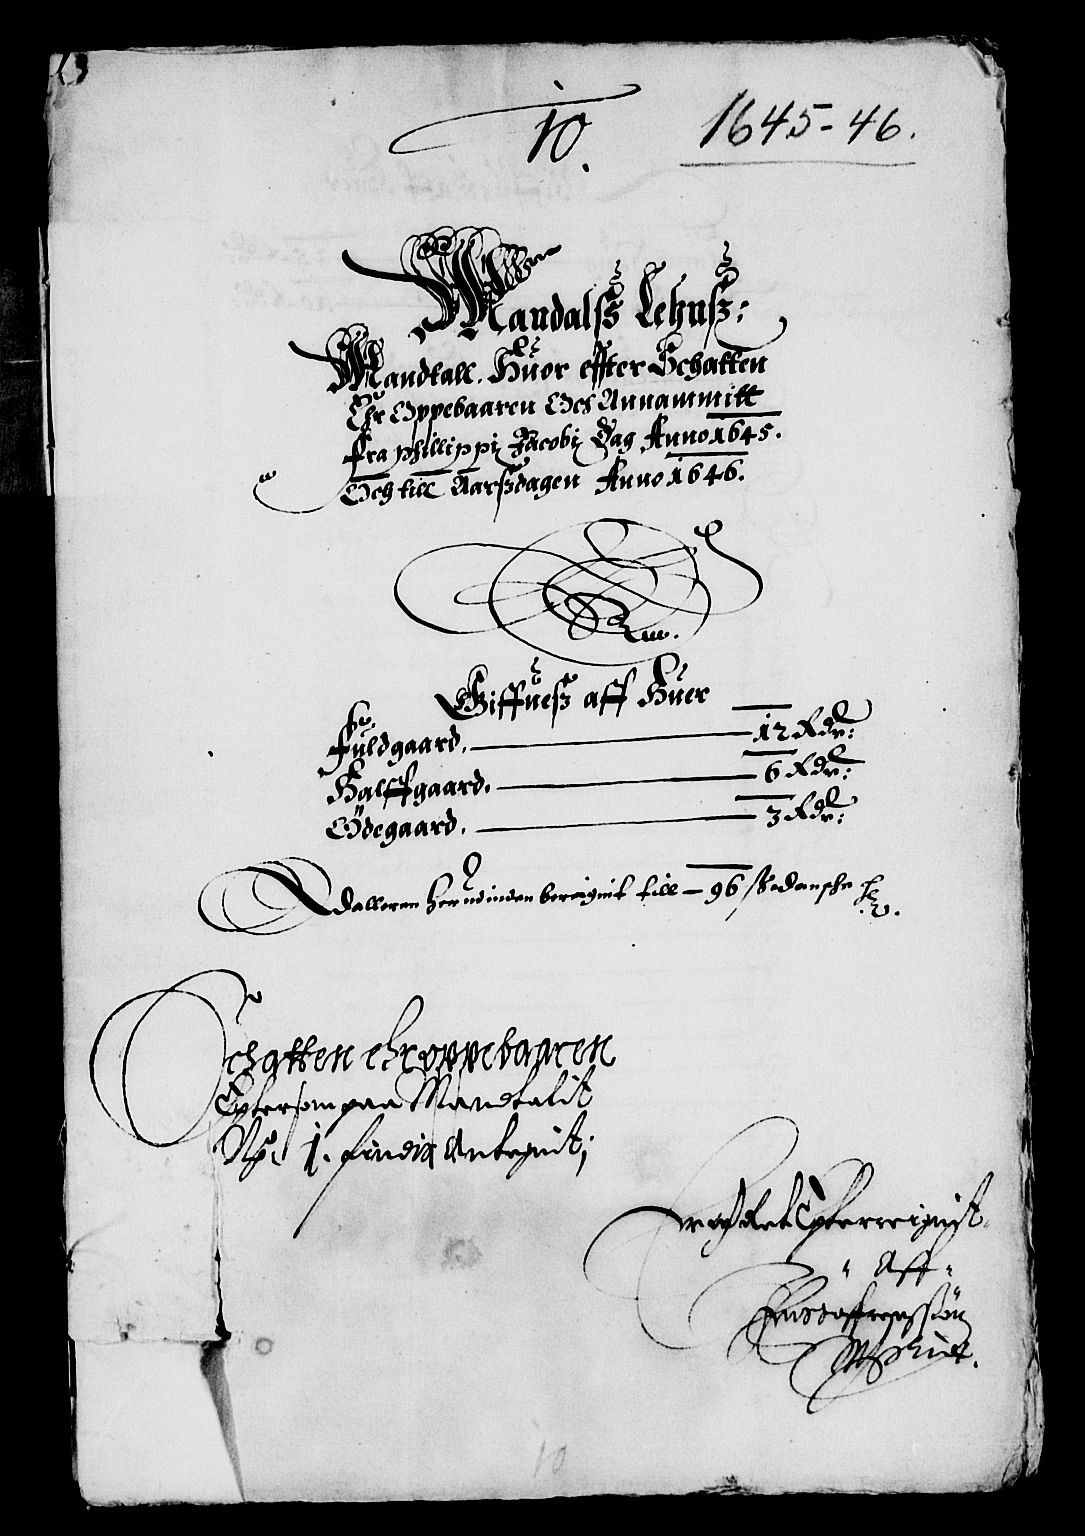 10.
1645-46.
Mandalſs Lehnſz:
Mandtall. Huor effter Schatten
Ehr Oppebaaren Och Annammitt
fra Phillippi Jacobi Dag Anno 1645.
Och till Aarſzdagen Anno 1646.
Giffueſz aff Huer
Fuldgaard. 12 Rdr:
Halffgaard. 6 Rdr:
Ödegaard. 3 Rdr:
Rdalleren herudinden bereignit till 96 ſk danſche
Schatten ehr oppebaaren
Epter ſom paa Mandtalit
No. 1. findis Antegnit;
Epterreignſt
Aff